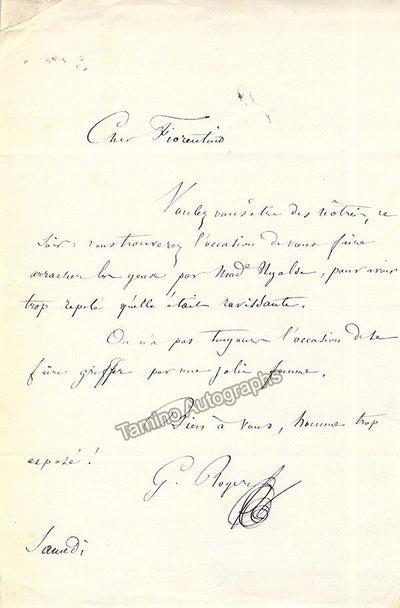 Cher Fiorentino
Voulez vous être des nôtres, ce
soir : vous trouverez l'occasion de vous faire
arracher les yeux par Made Ugalde, pour avoir
trop repeté qu'elle était ravissante.
On n'a pas toujours l'occasion de se
faire griffer par une jolie femme.
Tamino Autographs
Bien à vous, homme trop
exposé !
G. Roger
Samedi